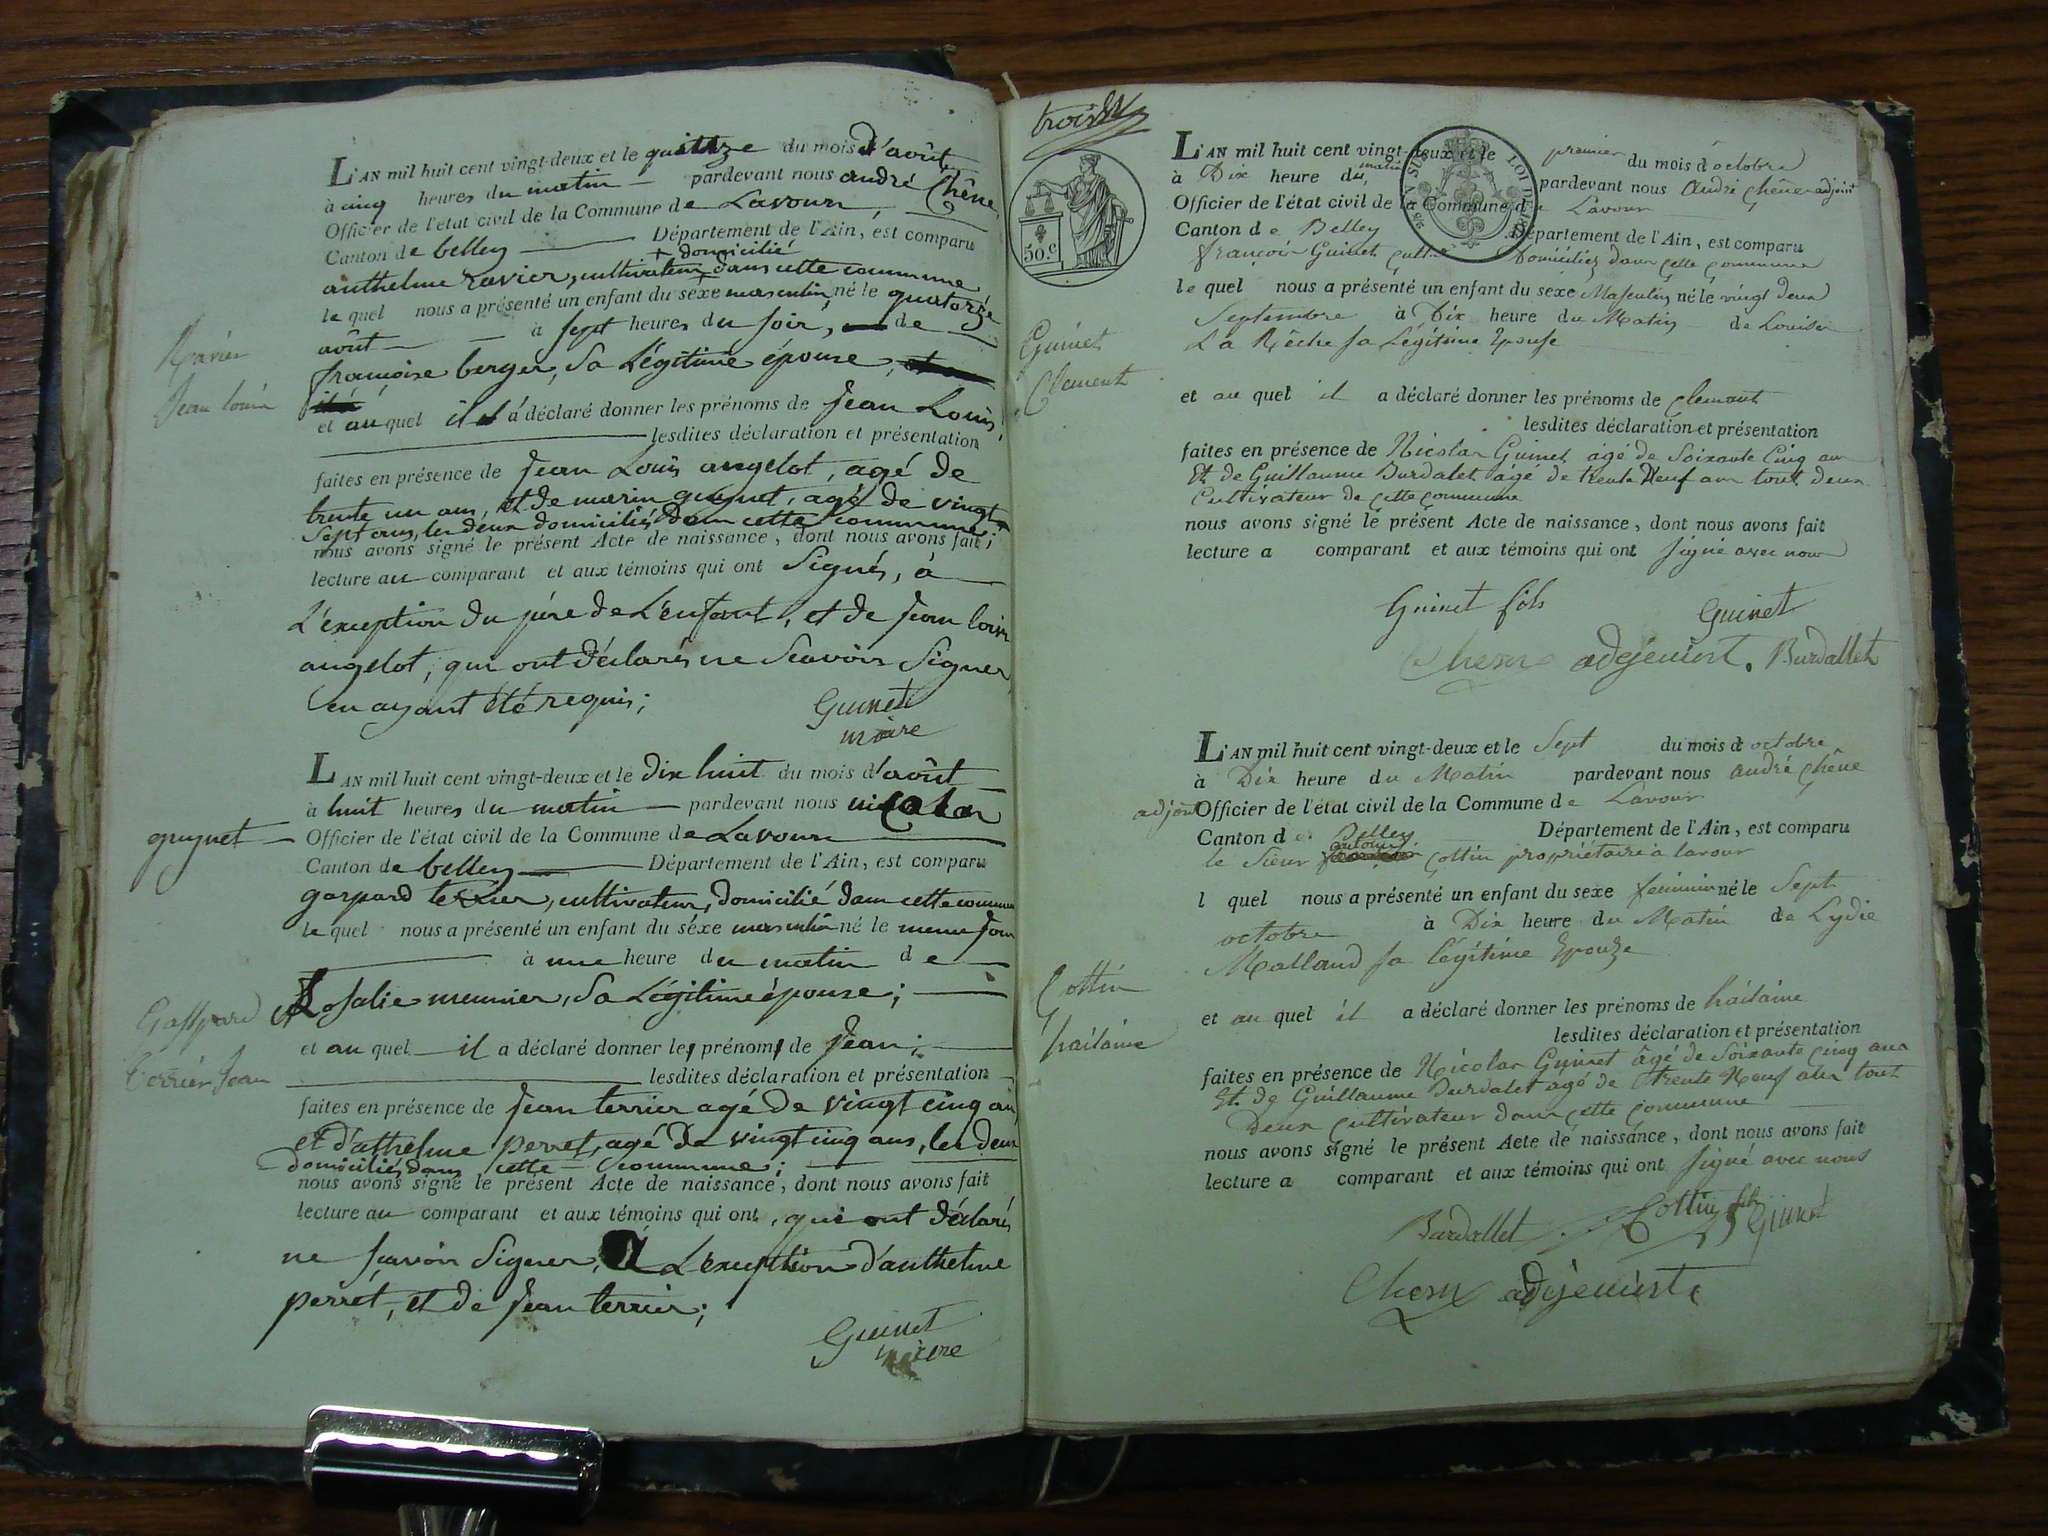 L'AN mil huit cent vingt-deux et le quinze du mois d'août
à cinq heures du matin pardevant nous andré Chêne,
Officier de l'état civil de la Commune de Lavours,
Canton de belley Département de l'Ain, est comparu
+ domicilié
anthelme ravier, cultivateur, dans cette commune
le quel nous a présenté un enfant du sexe masculin, né le quatorze
août à sept heures du soir, de
francoise berger, sa Légitime épouse,
et au quel il a déclaré donner les prénoms de Jean Louis,
lesdites déclaration et présentation
faites en présence de Jean Louis angelot, agé de
trente un ans, et de marin guynet, agé de vingt
sept ans, les deux domiciliés dans cette commune,
nous avons signé le présent Acte de naissance, dont nous avons fait;
lecture au comparant et aux témoins qui ont Signés, à
L'exception du père de L'enfant, et de Jean louis
angelot, qui ont déclarés ne Scavoir Signer,
en ayant été requis;
Guinet
maire
Ravier
Jean louis
L'AN mil huit cent vingt-deux et le dix huit du mois d'août
à huit heures du matin pardevant nous nicolas
guynet Officier de l'état civil de la Commune de Lavours
Canton de belley Département de l'Ain, est comparu
gaspard terrier, cultivateur, domicilié dans cette commune
le quel nous a présenté un enfant du séxe masculin né le meme jour
à une heure du matin de
Rosalie meunier, sa Légitime épouse;
et au quel il a déclaré donner les prénoms de Jean;
lesdites déclaration et présentation
faites en présence de Jean terrier agé de vingt cinq ans,
et d'anthelme perret, agé de vingt cinq ans, les deux
domiciliés dans cette commune;
nous avons signé le présent Acte de naissance, dont nous avons fait
lecture au comparant et aux témoins qui ont, qui ont déclarés
ne Scavoir Signer, à L'exception d'anthelme
perret, et de Jean terrier;
Guinet
maire
Gasspard
terrier Jean
trois
50.c
LOI DE
L'AN mil huit cent vingt-deux et le premier du mois d'octobre
à Dix heure du matin pardevant nous André Chêne adjoint
Officier de l'état civil de la Commune de Lavour
Canton de Belley Département de l'Ain, est comparu
françois Guinet Domiciliez dans cette Commune
le quel nous a présenté un enfant du sexe Masculin né le vingt deux
Septembre à Dix heure du Matin de Louise
La Rêche sa Légitime Epouse
et au quel il a déclaré donner les prénoms de Clemant
lesdites déclaration et présentation
faites en présence de Nicolas Guinet âgé de Soixante Cinq ans
Et de Guillaume Burdalet âgé de trente Neuf ans tout deux
Cultivateur de cette Commune
nous avons signé le présent Acte de naissance, dont nous avons fait
lecture a comparant et aux témoins qui ont Signé avec nous
Guinet fils Guinet
Chesne adejeuint. Burdallet
Guinet
Clement
L'AN mil huit cent vingt-deux et le Sept du mois d octobre
à Dix heure du Matin pardevant nous andré Chêne
adjoint Officier de l'état civil de la Commune de Lavour
Canton de Belley Département de l'Ain, est comparu
le Sieur antoine Cottin propriétaire a lavour
l quel nous a présenté un enfant du sexe feminin né le Sept
octobre à Dix heure du Matin de Lydie
Malland sa légitime Epouze
et au quel il a déclaré donner les prénoms de hailaine
lesdites déclaration et présentation
faites en présence de Nicolas Guinet âgé de Soixante Cinq ans
Et de Guillaume Burdalet agé de trente Neuf ans tout
Deux Cultivateur dans cette Commune
nous avons signé le présent Acte de naissance, dont nous avons fait
lecture a comparant et aux témoins qui ont Signé avec nous
Burdallet Cottin fils Guinet
Chesne adejeuint
Cottin
hailaine